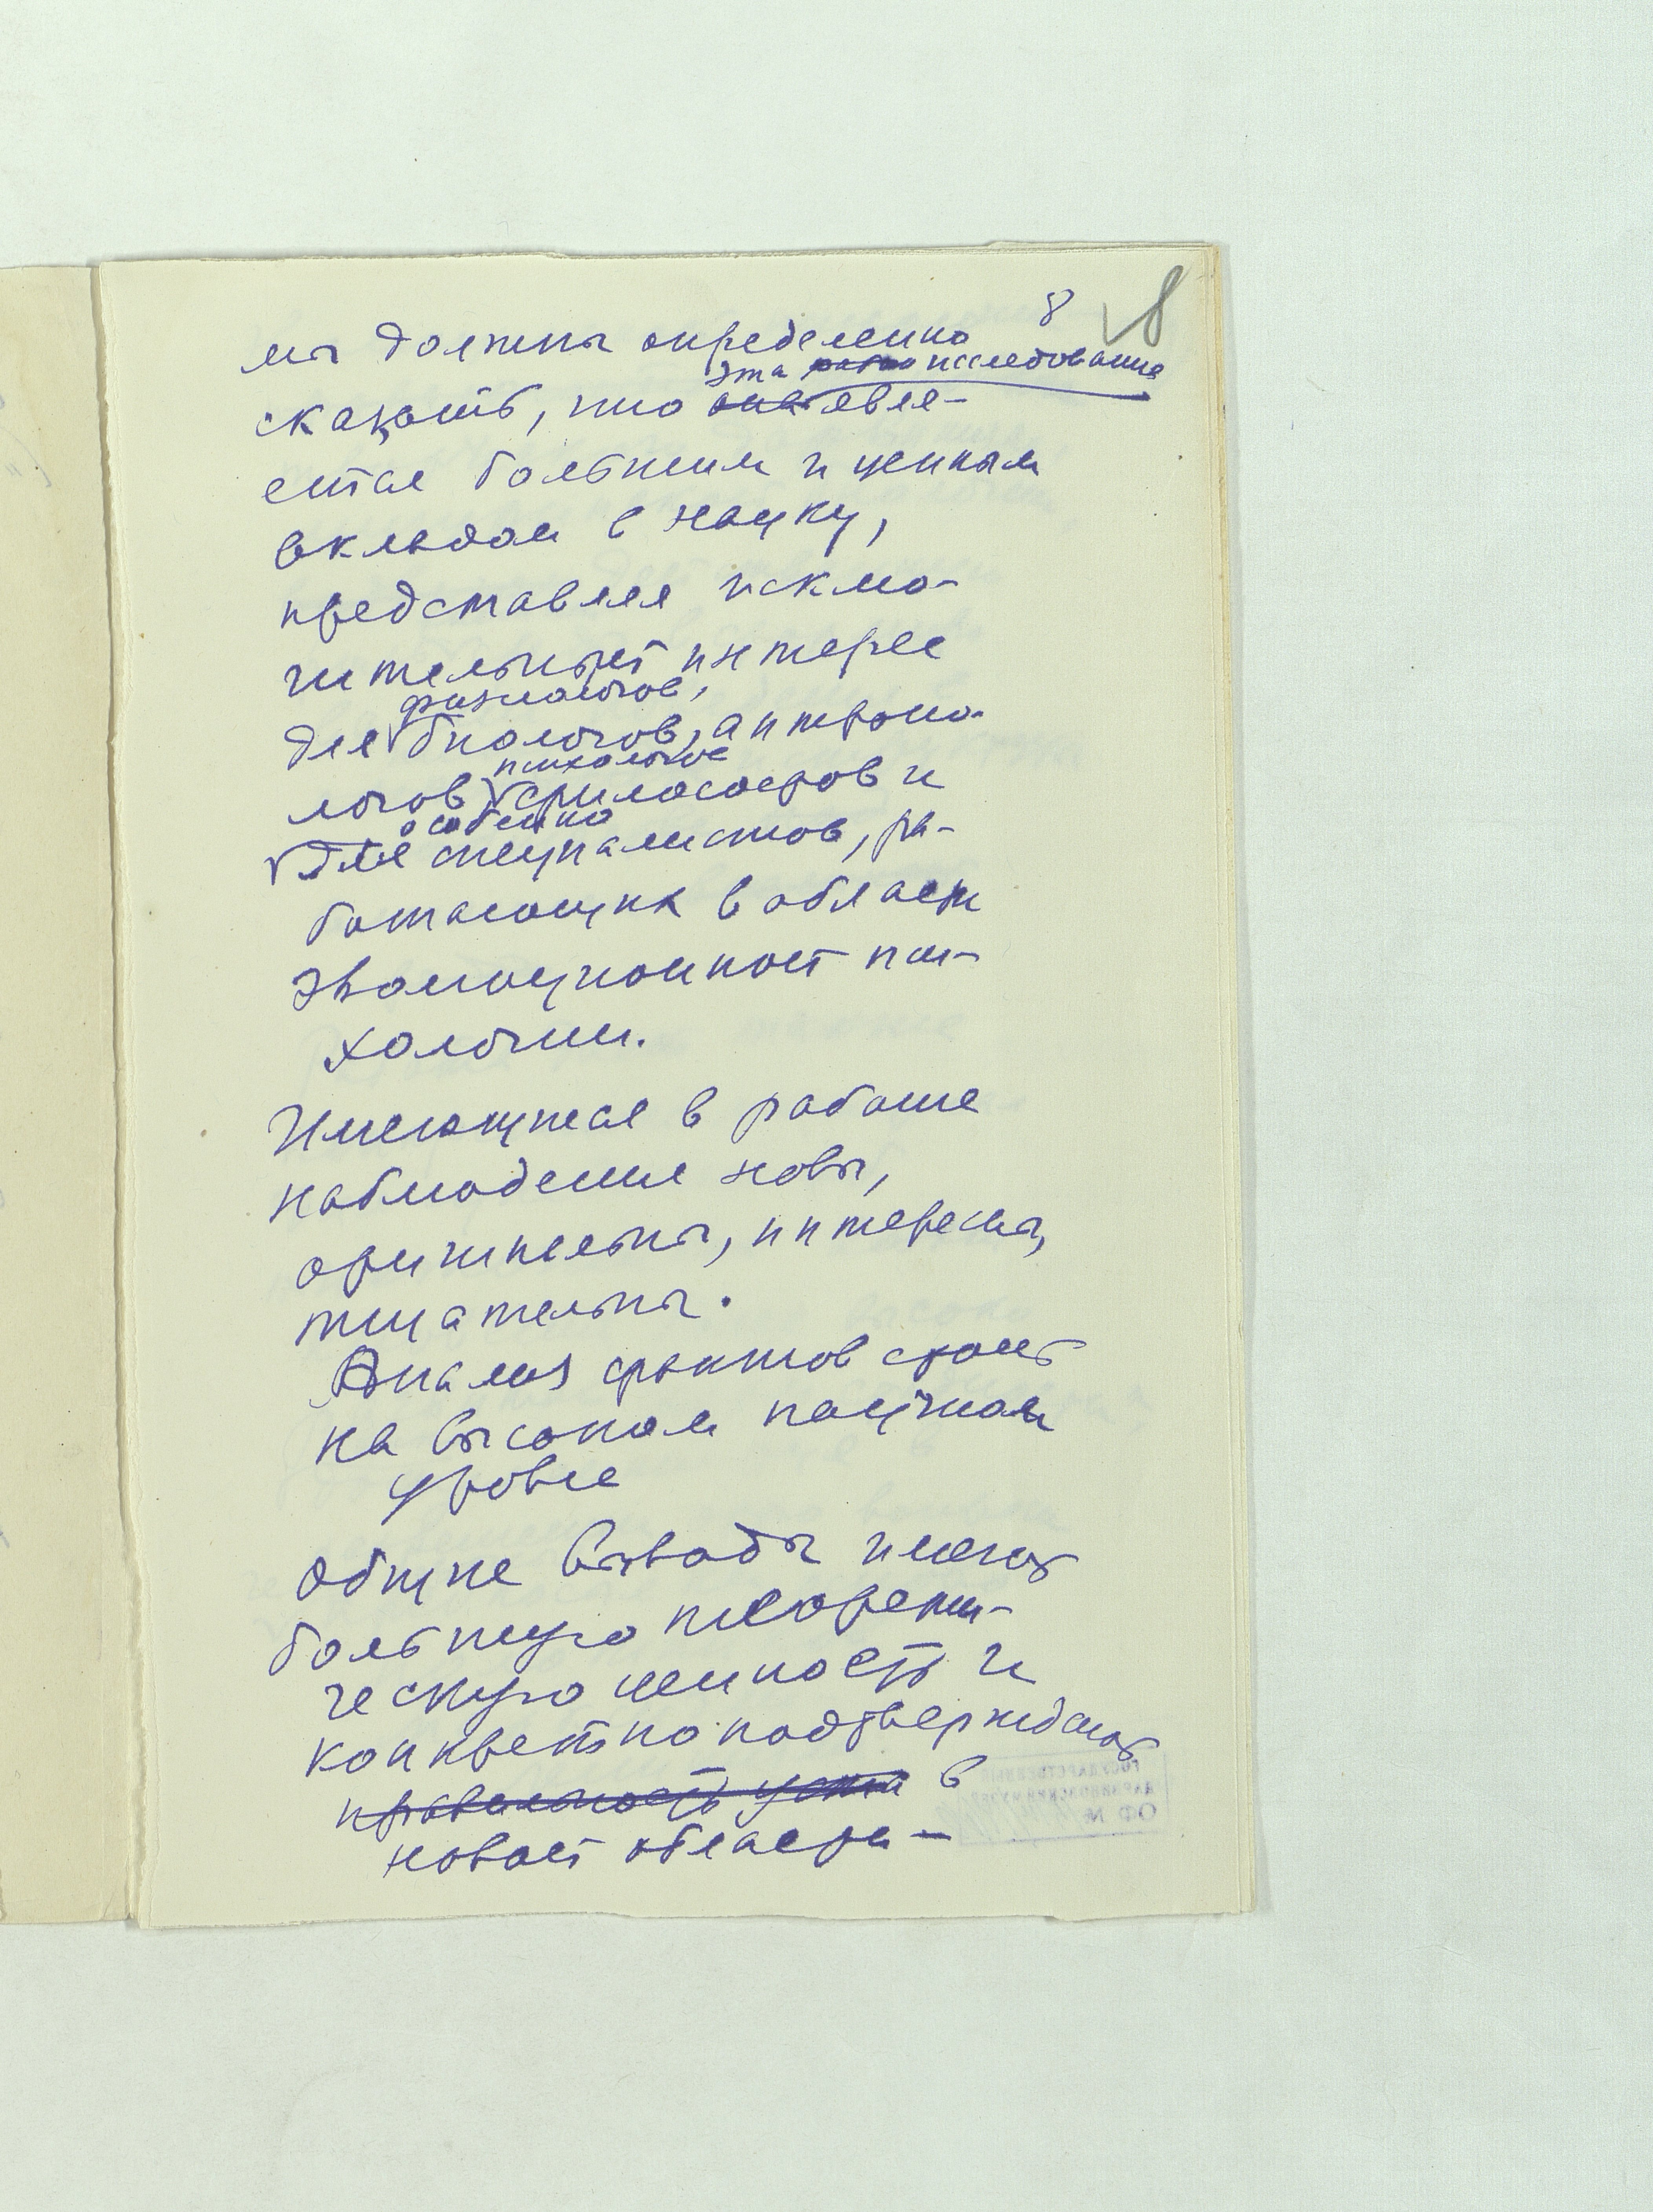 8 8
мы должны определенно
эта работа исследование
сказать, что она явля-
ется большим и ценным
вкладом в науку,
представляя исклю-
чительный интерес
физиологов,
для биологов, антропо-
логов, психологов философов и
особенно
для специалистов, ра-
ботающих в области
эволюционной пси-
хологии.
Имеющиеся в работе
наблюдения новы,
оригинальны, интересны,
тщательны.
Анализ фактов стоит
на высоком научном
уровне
Общие выводы имеют
большую теорети-
ческую ценность и
конкретно подтверждают
правильность в
новой области –
ГОСУДАРСТВЕННЫЙ
ДАРВИНОВСКИЙ МУЗЕЙ
ОФ №